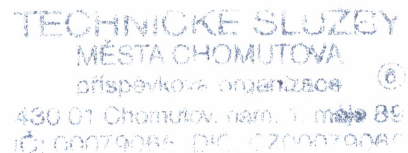 TECHNICKÉ SLUŽBY
MĚSTA CHOMUTOVA
příspěvková organizace
6
430 01 Chomutov, nám. 1. máje 89
IČ: 00079065, DIČ: CZ00079065